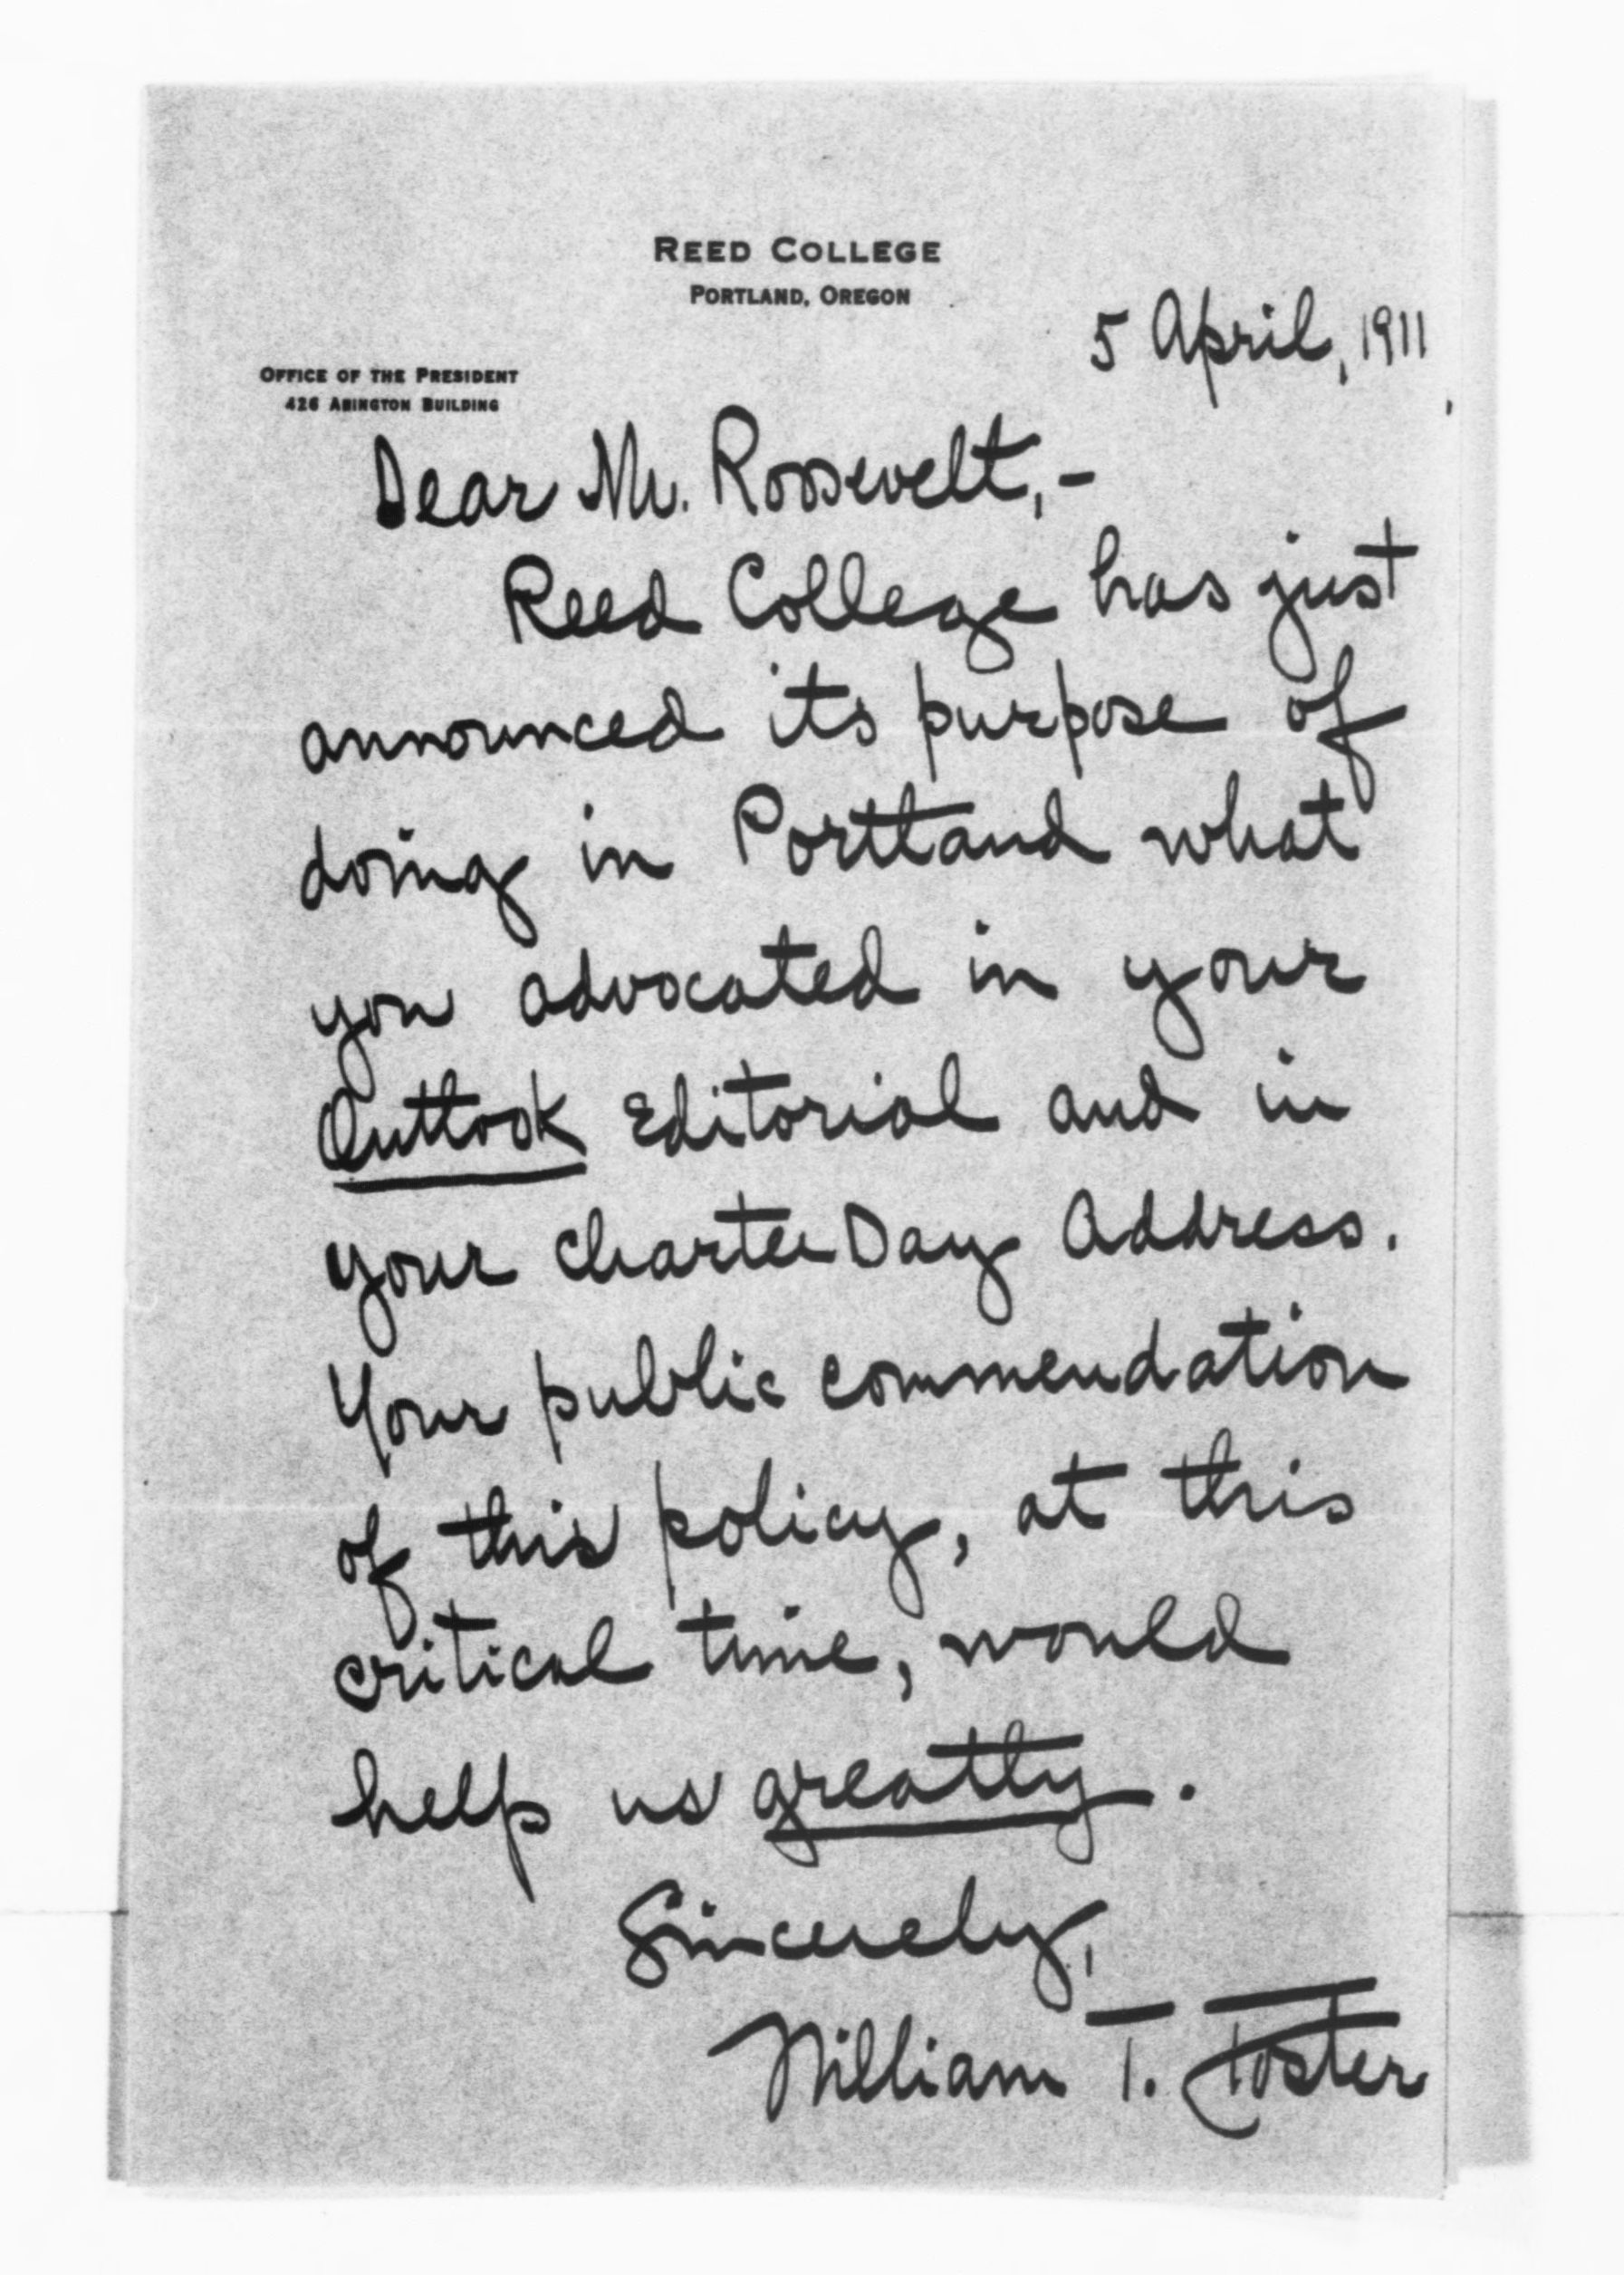 REED COLLEGE
PORTLAND, OREGON
5 April, 1911
OFFICE OF THE PRESIDENT
426 ABINGTON BUILDING
Dear Mr. Roosevelt,-
Reed College has just
announced its purpose of
doing in Portland what
you advocated in your
Outlook Editorial and in
your Charter Day Address.
Your public commendation
of this policy, at this
critical time, would
help us greatly.
Sincerely,
William T. Foster